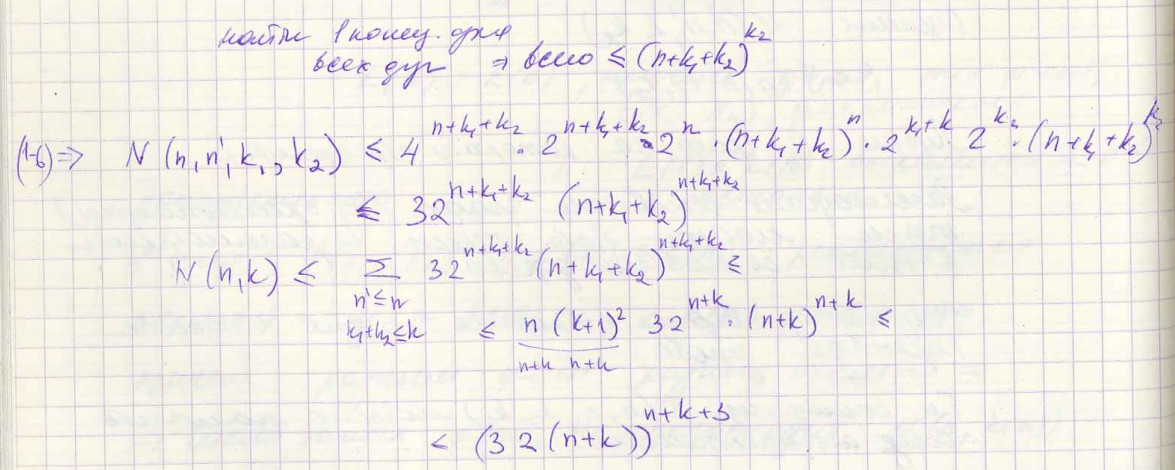 найти 1 конец. для
всех дуг ⇒ всего ≤ (n+k₁+k₂)^{k₂}
(1-6) ⇒ N(n, n', k₁, k₂) ≤ 4^{n+k₁+k₂} · 2^{n+k₁+k₂} · 2^n · (n+k₁+k₂)^n · 2^{k₁+k} 2^{k₂} · (n+k₁+k₂)^{k₂}
≤ 32^{n+k₁+k₂} (n+k₁+k₂)^{n+k₁+k₂}
N(n,k) ≤ Σ 32^{n+k₁+k₂} (n+k₁+k₂)^{n+k₁+k₂} ≤
n' ≤ n
k₁+k₂ ≤ k
≤ n (k+1)² 32^{n+k} · (n+k)^{n+k} ≤
n+k n+k
< (32(n+k))^{n+k+3}